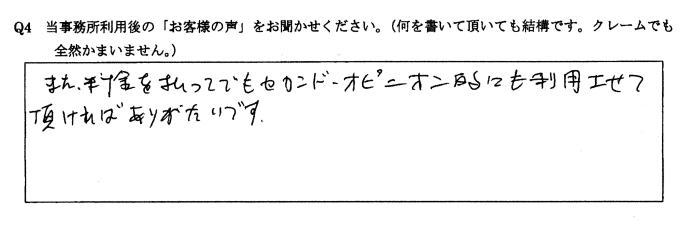 Q4 当事務所利用後の「お客様の声」をお聞かせください。（何を書いて頂いても結構です。クレームでも
全然かまいません。）
また、料金を払ってでもセカンド・オピニオン的にも利用させて
頂ければありがたいです。